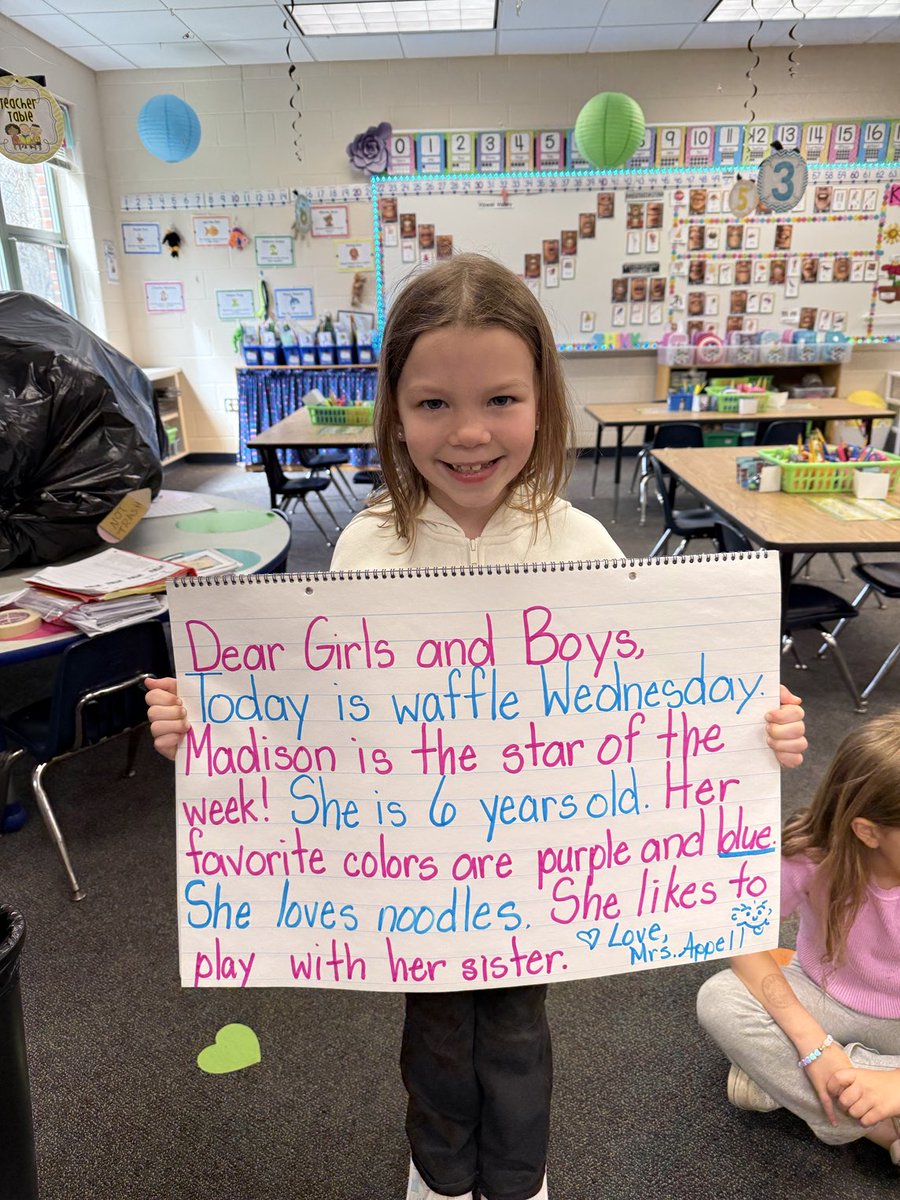 teacher
Table
0 1 2 3 4 5 9 10 11 12 13 14 15 16
3
5
NOT
TRASH
Dear Girls and Boys,
Today is waffle Wednesday.
Madison is the star of the
week! She is 6 years old. Her
favorite colors are purple and blue.
She loves noodles. She likes to
play with her sister. ♡ Love,
Mrs. Appell